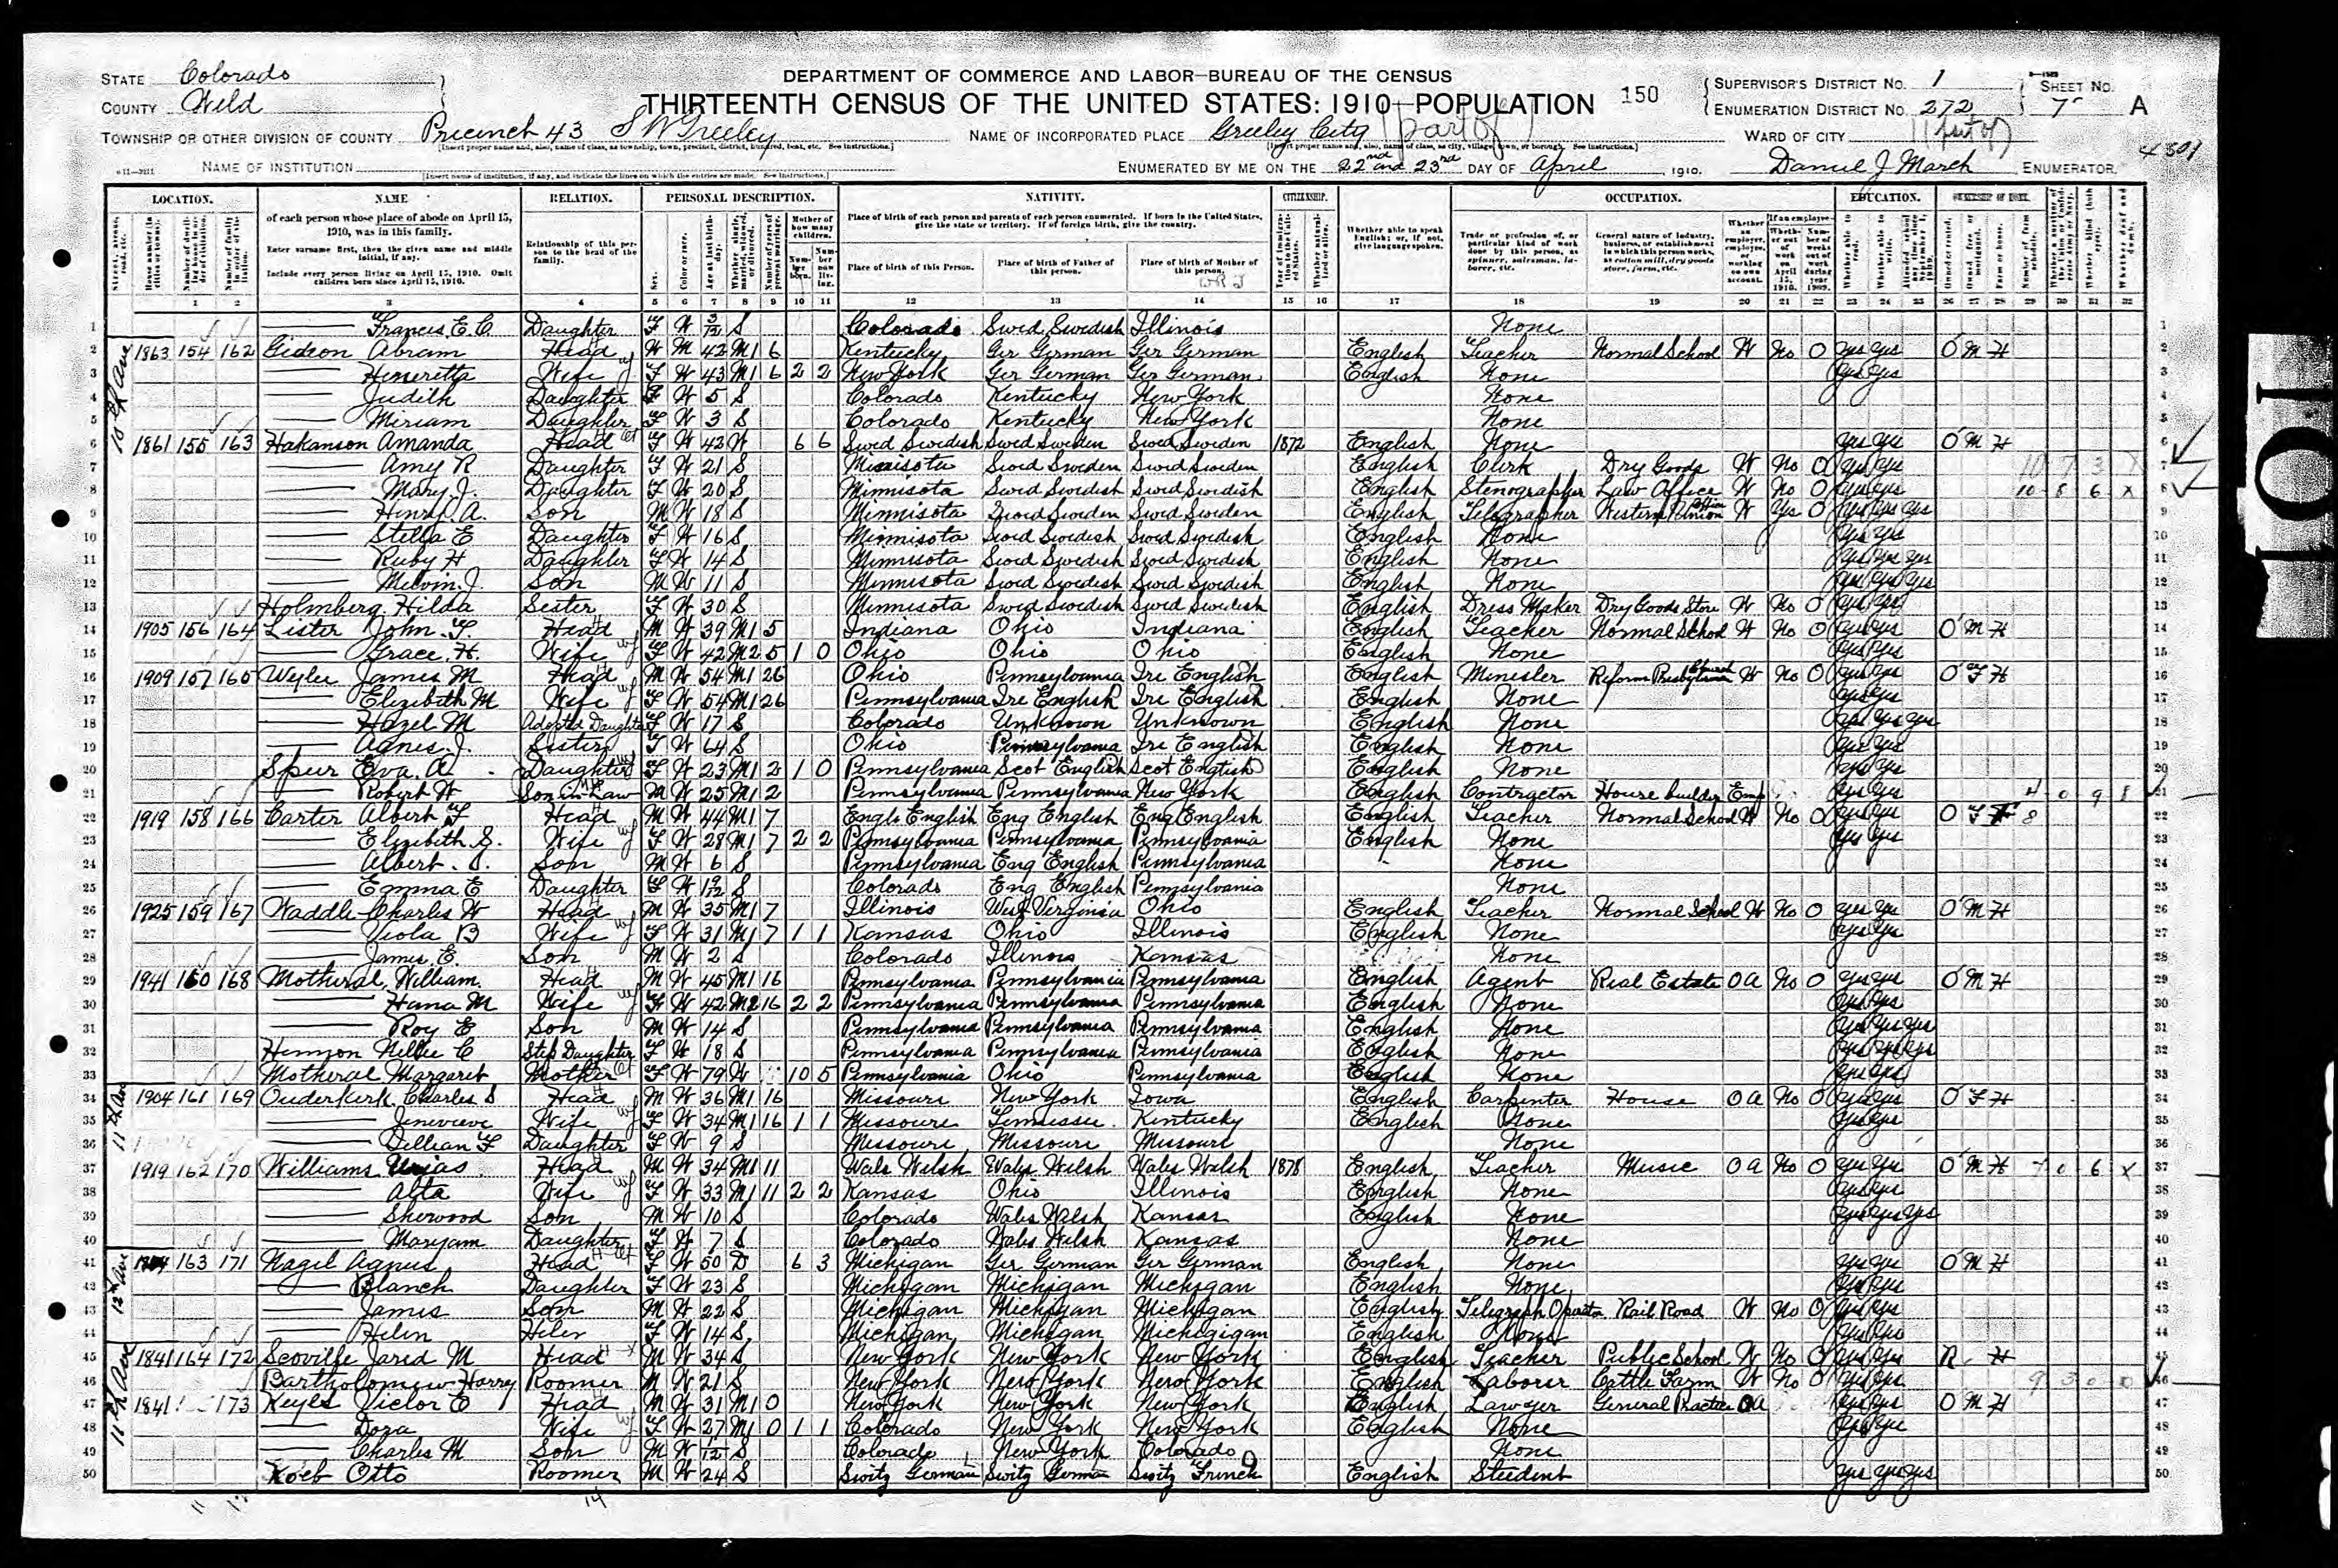 STATE Colorado
COUNTY Weld
TOWNSHIP OR OTHER DIVISION OF COUNTY Precinct 43 S W Greeley
[Insert proper name and, also, name of class, as township, town, precinct, district, hundred, beat, etc. See instructions.]
NAME OF INSTITUTION
[Insert name of institution, if any, and indicate the lines on which the entries are made. See instructions.]
DEPARTMENT OF COMMERCE AND LABOR—BUREAU OF THE CENSUS
THIRTEENTH CENSUS OF THE UNITED STATES: 1910—POPULATION 150
NAME OF INCORPORATED PLACE Greeley City (part of)
[Insert proper name and, also, name of class, as city, village, town, or borough. See instructions.]
ENUMERATED BY ME ON THE 22nd and 23rd DAY OF April, 1910. Daniel J March ENUMERATOR
SUPERVISOR'S DISTRICT NO. 1 SHEET NO.
ENUMERATION DISTRICT NO. 272 7 A
WARD OF CITY 1 (part of)
4301
LOCATION. NAME RELATION. PERSONAL DESCRIPTION. NATIVITY. CITIZENSHIP. OCCUPATION. EDUCATION. OWNERSHIP OF HOME.
of each person whose place of abode on April 15, 1910, was in this family.
Enter surname first, then the given name and middle initial, if any.
Include every person living on April 15, 1910. Omit children born since April 15, 1910.
Relationship of this person to the head of the family.
Place of birth of each person and parents of each person enumerated. If born in the United States, give the state or territory. If of foreign birth, give the country.
Place of birth of this Person. Place of birth of Father of this person. Place of birth of Mother of this person.
Whether able to speak English; or, if not, give language spoken.
1 2 3 4 5 6 7 8 9 10 11 12 13 14 15 16 17 18 19 20 21 22 23 24 25 26 27 28 29 30 31 32
1 Francis E. C. Daughter F W 3/12 S Colorado Swed Swedish Illinois None
10th Ave
2 1863 154 162 Gideon Abram Head W M 42 M1 6 Kentucky Ger German Ger German English Teacher Normal School W No 0 Yes Yes O M H
3 Heneretta Wife F W 43 M1 6 2 2 New York Ger German Ger German English None Yes Yes
4 Judith Daughter F W 5 S Colorado Kentucky New York None
5 Miriam Daughter F W 3 S Colorado Kentucky New York None
6 1861 155 163 Hakanson Amanda Head F W 42 W 6 6 Swed Swedish Swed Sweden Swed Sweden 1872 English None Yes Yes O M H
7 Amy R Daughter F W 21 S Minnisota Swed Sweden Swed Sweden English Clerk Dry Goods W No 0 Yes Yes
8 Mary J. Daughter F W 20 S Minnisota Swed Swedish Swed Swedish English Stenographer Law Office W No 0 Yes Yes 10 8 6 X
9 Henry A. Son M W 18 S Minnisota Swed Sweden Swed Sweden English Telegrapher Western Union Office W Yes 0 Yes Yes Yes
10 Stella E Daughter F W 16 S Minnisota Swed Swedish Swed Swedish English None Yes Yes
11 Ruby H Daughter F W 14 S Minnisota Swed Swedish Swed Swedish English None Yes Yes Yes
12 Melvin J. Son M W 11 S Minnisota Swed Swedish Swed Swedish English None Yes Yes Yes
13 Holmberg Hilda Sister F W 30 S Minnesota Swed Swedish Swed Swedish English Dress Maker Dry Goods Store W No 0 Yes Yes
14 1905 156 164 Lister John T. Head M W 39 M1 5 Indiana Ohio Indiana English Teacher Normal School W No 0 Yes Yes O M H
15 Grace H. Wife F W 42 M2 5 1 0 Ohio Ohio Ohio English None Yes Yes
16 1909 157 165 Wylie James M Head M W 54 M1 26 Ohio Pennsylvania Ire English English Minister Reform Presbyterian Church W No 0 Yes Yes O F H
17 Elizabeth M Wife F W 54 M1 26 Pennsylvania Ire English Ire English English None Yes Yes
18 Hazel M Adopted Daughter F W 17 S Colorado Unknown Unknown English None Yes Yes Yes
19 Agnes J. Sister F W 64 S Ohio Pennsylvania Ire English English None Yes Yes
20 Speer Eva A Daughter F W 23 M1 2 1 0 Pennsylvania Scot English Scot English English None Yes Yes
21 Robert W Son in Law M W 25 M1 2 Pennsylvania Pennsylvania New York English Contractor House builder Emp Yes Yes 4 0 9 8
22 1919 158 166 Carter Albert F Head M W 44 M1 7 Engl English Eng English Eng English English Teacher Normal School W No 0 Yes Yes O F 8
23 Elizabeth S. Wife F W 28 M1 7 2 2 Pennsylvania Pennsylvania Pennsylvania English None Yes Yes
24 Albert Son M W 6 S Pennsylvania Eng English Pennsylvania None
25 Emma E Daughter F W 1 9/12 S Colorado Eng English Pennsylvania None
26 1925 159 167 Waddle Charles W Head M W 35 M1 7 Illinois West Virginia Ohio English Teacher Normal School W No 0 Yes Yes O M H
27 Viola B Wife F W 31 M1 7 1 1 Kansas Ohio Illinois English None Yes Yes
28 James E. Son M W 2 S Colorado Illinois Kansas None
29 1941 160 168 Motheral William Head M W 45 M1 16 Pennsylvania Pennsylvania Pennsylvania English Agent Real Estate OA No 0 Yes Yes O M H
30 Hana M Wife F W 42 M2 16 2 2 Pennsylvania Pennsylvania Pennsylvania English None Yes Yes
31 Roy E Son M W 14 S Pennsylvania Pennsylvania Pennsylvania English None Yes Yes Yes
32 Nellie C Step Daughter F W 18 S Pennsylvania Pennsylvania Pennsylvania English None Yes Yes Yes
33 Motheral Margaret Mother F W 79 W 10 5 Pennsylvania Ohio Pennsylvania English None Yes Yes
11th Ave
34 1904 161 169 Ouderkirk Charles S Head M W 36 M1 16 Missouri New York Iowa English Carpenter House OA No 0 Yes Yes O F H
35 Jenevieve Wife F W 34 M1 16 1 1 Missouri Tennessee Kentucky English None Yes Yes
36 Lillian F Daughter F W 9 S Missouri Missouri Missouri None
37 1919 162 170 Williams Urias Head M W 34 M1 11 Wale Welsh Wales Welsh Wales Welsh 1878 English Teacher Music OA No 0 Yes Yes O M H 7 0 6 X
38 Alta Wife F W 33 M1 11 2 2 Kansas Ohio Illinois English None Yes Yes
39 Sherwood Son M W 10 S Colorado Wales Welsh Kansas English None Yes Yes Yes
40 Maryam Daughter F W 7 S Colorado Wales Welsh Kansas None
12th Ave
41 163 171 Nagel Agnus Head F W 50 D 6 3 Michigan Ger German Ger German English None Yes Yes O M H
42 Blanch Daughter F W 23 S Michigan Michigan Michigan English None Yes Yes
43 James Son M W 22 S Michigan Michigan Michigan English Telegraph Operator Rail Road W No 0 Yes Yes
44 Helen Helen F W 14 S Michigan Michigan Michigigan English None Yes Yes
11th Ave
45 1841 164 172 Scoville Jared M Head M W 34 S New York New York New York English Teacher Public School W No 0 Yes Yes R H
46 Bartholomew Harry Roomer M W 21 S New York New York New York English Laborer Cattle Farm W No 0 Yes Yes 9 3 0 0
47 1841 173 Keyes Victor E Head M W 31 M1 0 New York New York New York English Lawyer General Practice OA Yes Yes O M H
48 Dora Wife F W 27 M1 0 1 1 Colorado New York New York English None Yes Yes
49 Charles M Son M W /12 S Colorado New York Colorado None
50 Koeb Otto Roomer M W 24 S Switz German Switz German Switz French English Student Yes Yes Yes
14
101